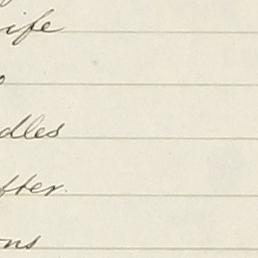 ife
dles
fter.
ons